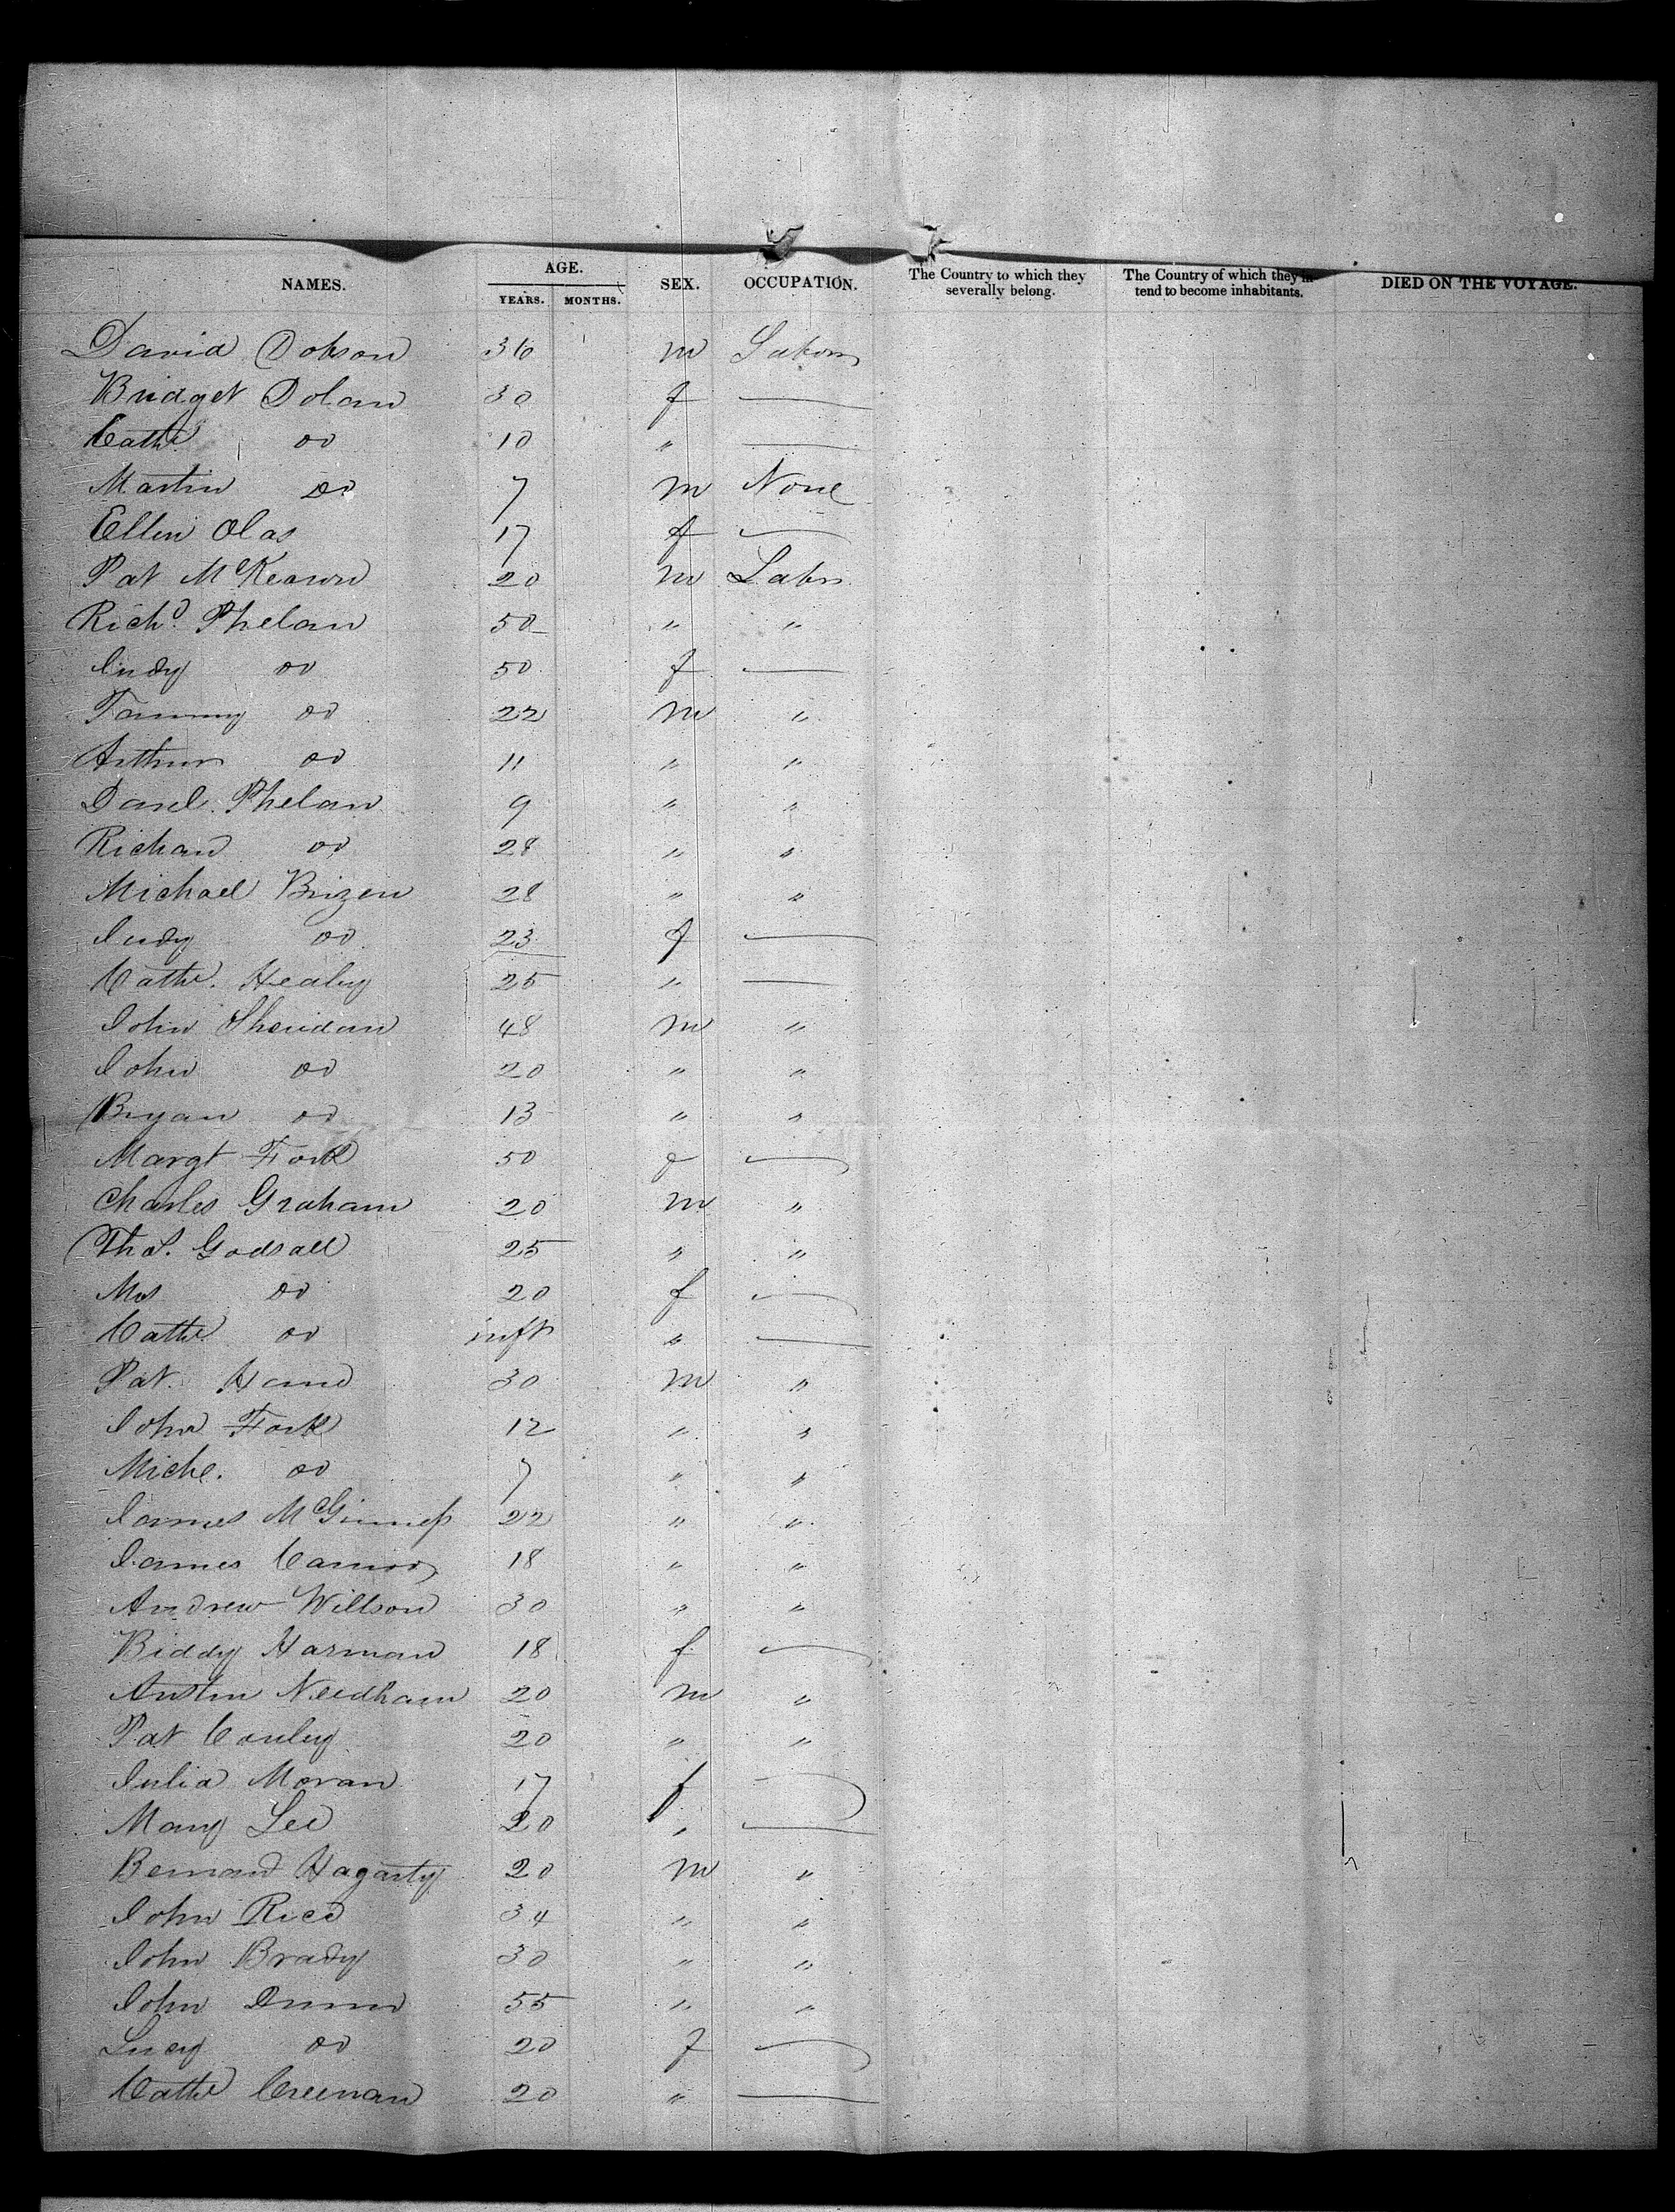 NAMES. AGE. YEARS. MONTHS. SEX. OCCUPATION. The Country to which they severally belong. The Country of which they in- tend to become inhabitants. DIED ON THE VOYAGE.
David Dobson 36 m Labor
Bridget Dolan 30 f —
Cathe do 10 " —
Martin Do 7 m None
Ellen 17 f —
Pat McKeown 20 m Labr
Richd. Phelan 50 " "
Judy do 50 f —
Tommy do 22 m "
Arthur do 11 " "
Danl. Phelan 9 " "
Richard do 28 " "
Michael Brizen 28 " "
Judy do 23 f —
Cathe. Healey 25 " —
John Sheridan 48 m "
John do 20 " "
Bryan do 13 " "
Margt 50 f —
Charles Graham 20 m "
Thos. Godsall 25 " "
Mrs do 20 f —
Cathe do inft " —
Pat. Hand 30 m "
John 12 " "
Michl. do 7 " "
James McGinness 22 " "
James Connor 18 " "
Andrew Willson 30 " "
Biddy Harman 18 f —
Austin Needham 20 m "
Pat Conley 20 " "
Julia Moran 17 f —
Mary Lee 20 " —
Bernard Hagarty 20 m "
John Rice 34 " "
John Brady 30 " "
John Dunn 55 " "
Lucy do 20 f —
Cathe Creenan 20 " —